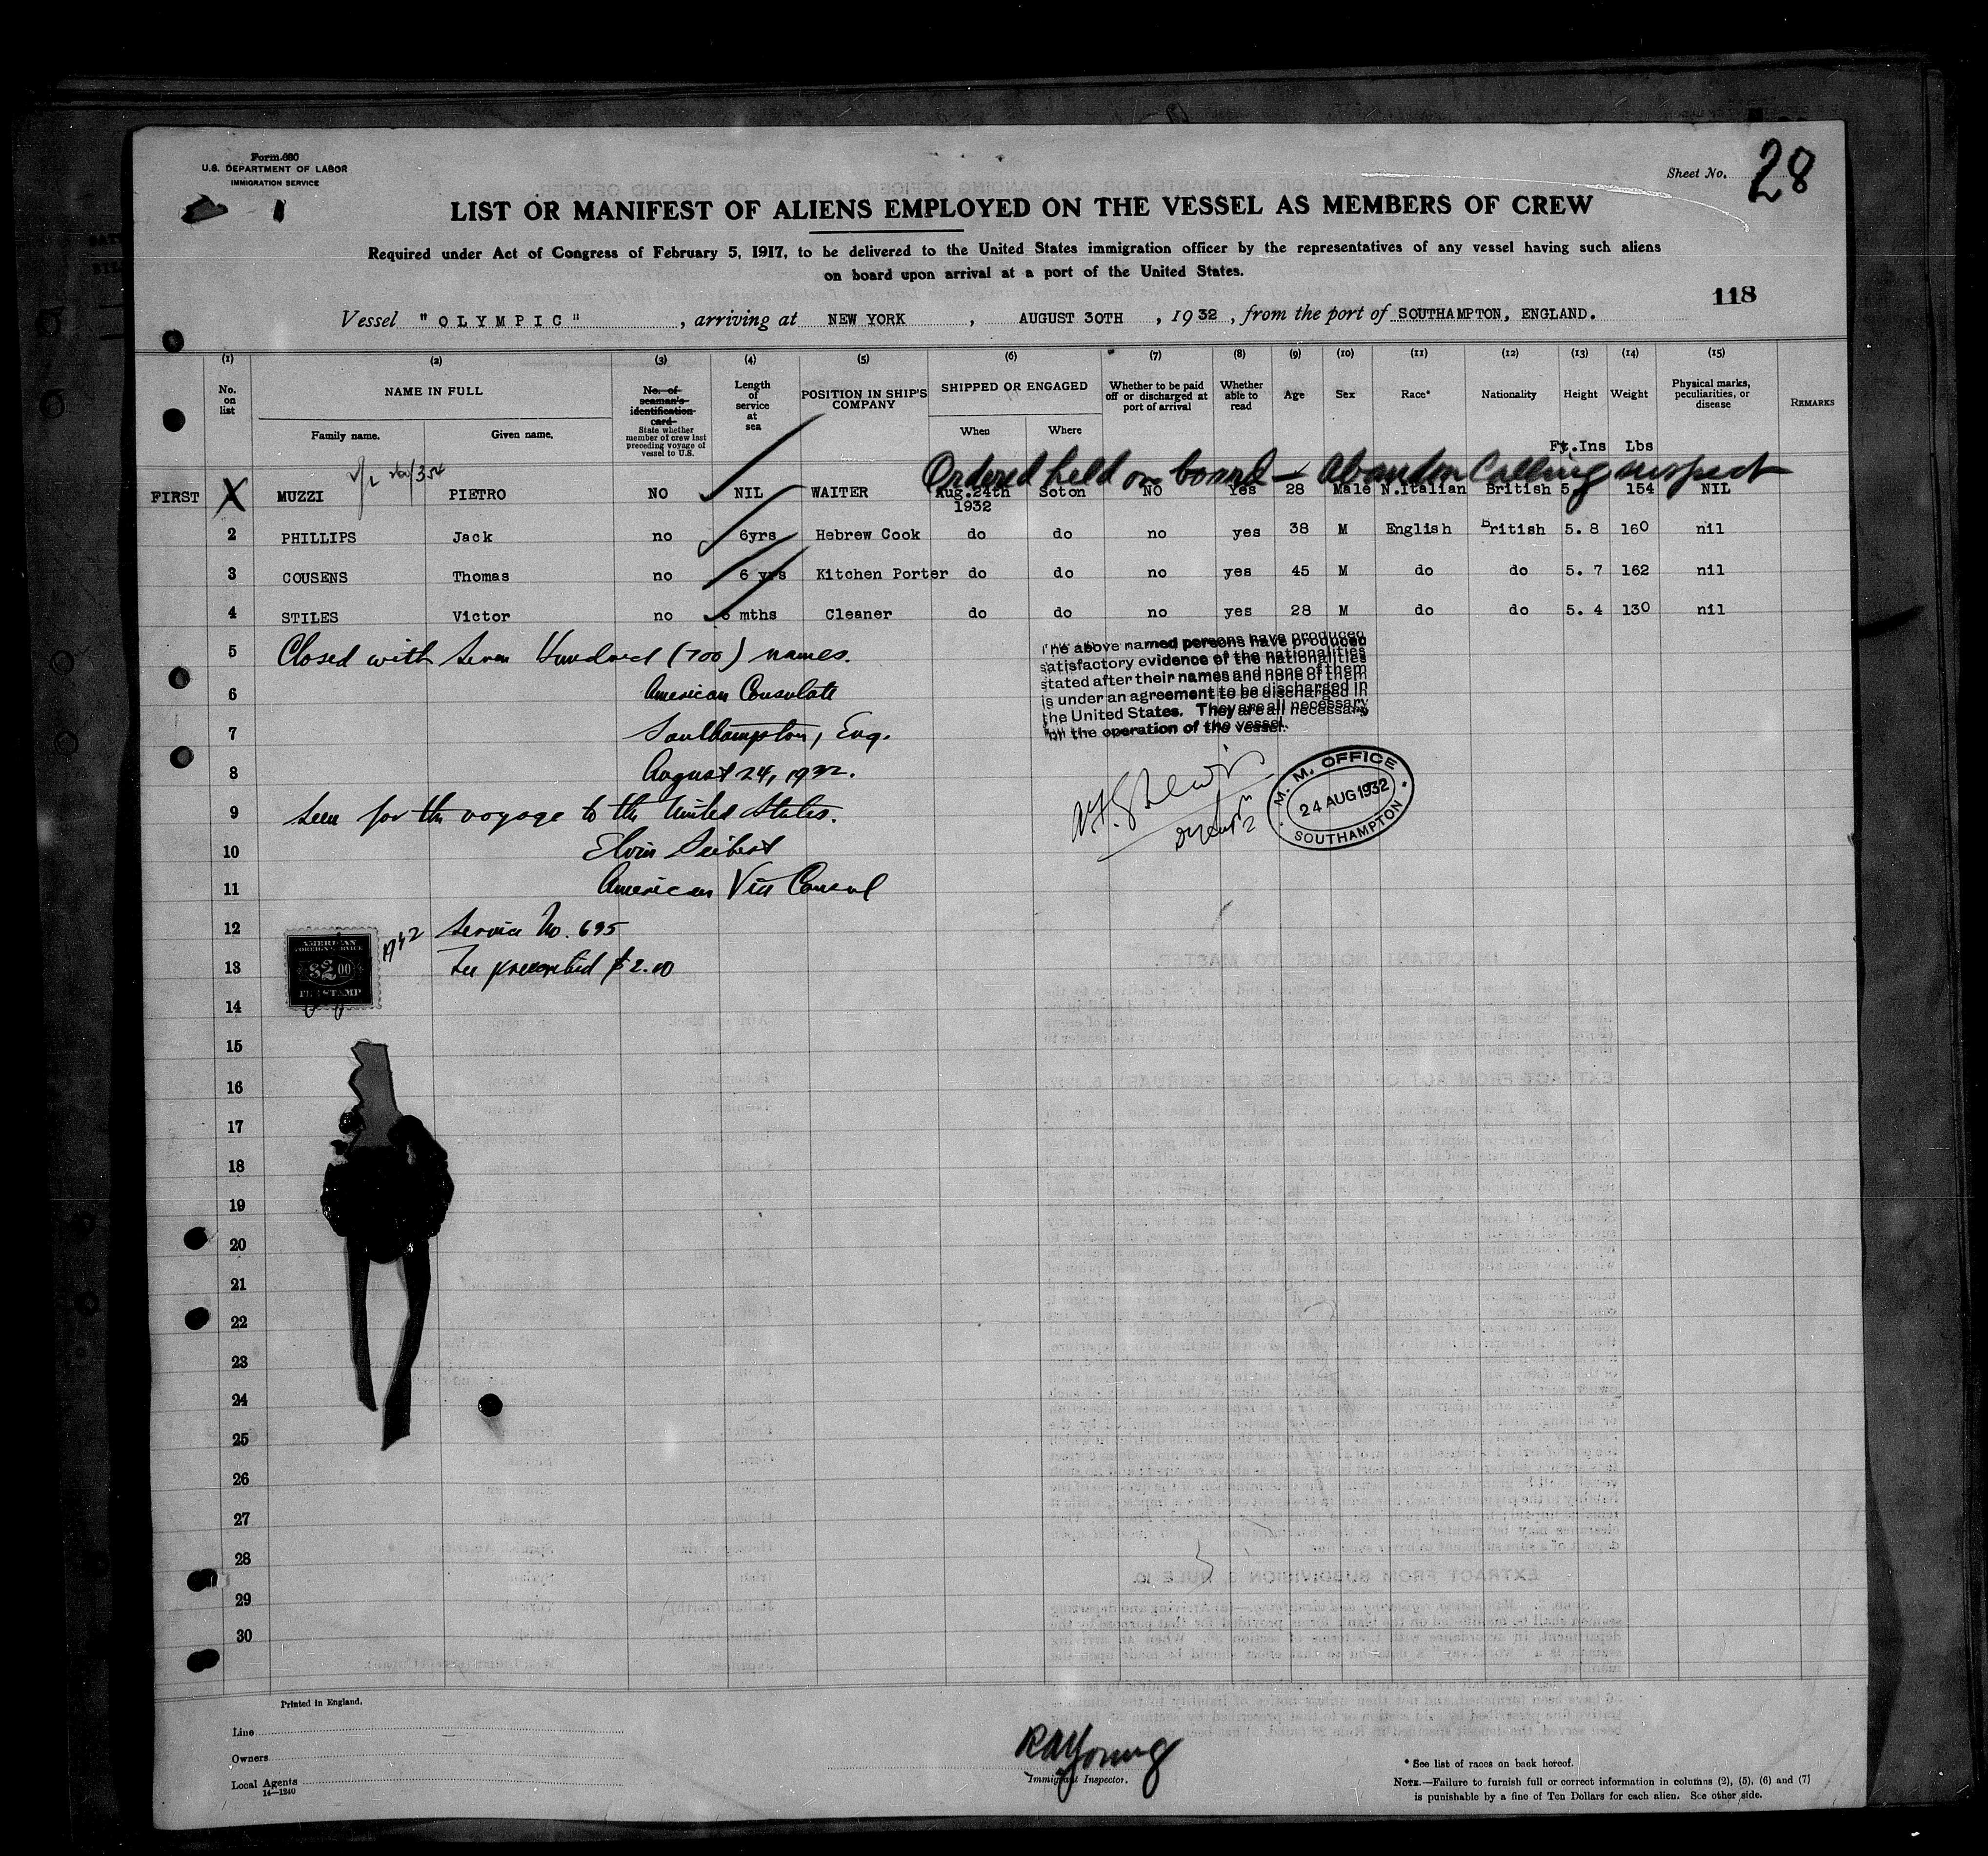 Form 680
U.S. DEPARTMENT OF LABOR
IMMIGRATION SERVICE
Sheet No. 28
LIST OR MANIFEST OF ALIENS EMPLOYED ON THE VESSEL AS MEMBERS OF CREW
Required under Act of Congress of February 5, 1917, to be delivered to the United States immigration officer by the representatives of any vessel having such aliens
on board upon arrival at a port of the United States.
118
Vessel "OLYMPIC", arriving at NEW YORK, AUGUST 30TH, 1932, from the port of SOUTHAMPTON, ENGLAND.
(1) (2) (3) (4) (5) (6) (7) (8) (9) (10) (11) (12) (13) (14) (15)
No. on list
NAME IN FULL
Family name. Given name.
No. of seaman's identification card
State whether member of crew last preceding voyage of vessel to U.S.
Length of service at sea
POSITION IN SHIP'S COMPANY
SHIPPED OR ENGAGED
When Where
Whether to be paid off or discharged at port of arrival
Whether able to read
Age
Sex
Race*
Nationality
Height
Weight
Physical marks, peculiarities, or disease
REMARKS
Ft.Ins Lbs
Ordered held on board - Abandon Calling suspect
FIRST X MUZZI PIETRO NO NIL WAITER Aug.24th 1932 Soton NO Yes 28 Male N.Italian British 5 154 NIL
2 PHILLIPS Jack no 6yrs Hebrew Cook do do no yes 38 M English British 5. 8 160 nil
3 COUSENS Thomas no 6 yrs Kitchen Porter do do no yes 45 M do do 5. 7 162 nil
4 STILES Victor no 6 mths Cleaner do do no yes 28 M do do 5. 4 130 nil
5 Closed with Seven Hundred (700) names.
6 American Consulate
7 Southampton, Eng.
8 August 24, 1932.
9 Seen for the voyage to the United States.
10 Elvin Seibert
11 American Vice Consul
12 Service No. 695
13 Fee prescribed $2.00
14
15
16
17
18
19
20
21
22
23
24
25
26
27
28
29
30
The above named persons have produced
satisfactory evidence of the nationalities
stated after their names and none of them
is under an agreement to be discharged in
the United States. They are all necessary
for the operation of the vessel.
M. M. OFFICE
24 AUG 1932
SOUTHAMPTON
AMERICAN
FOREIGN SERVICE
$2.00
FEE STAMP
Printed in England.
Line
Owners
Local Agents
14—1240
RAYoung
Immigrant Inspector.
* See list of races on back hereof.
NOTE.—Failure to furnish full or correct information in columns (2), (5), (6) and (7)
is punishable by a fine of Ten Dollars for each alien. See other side.